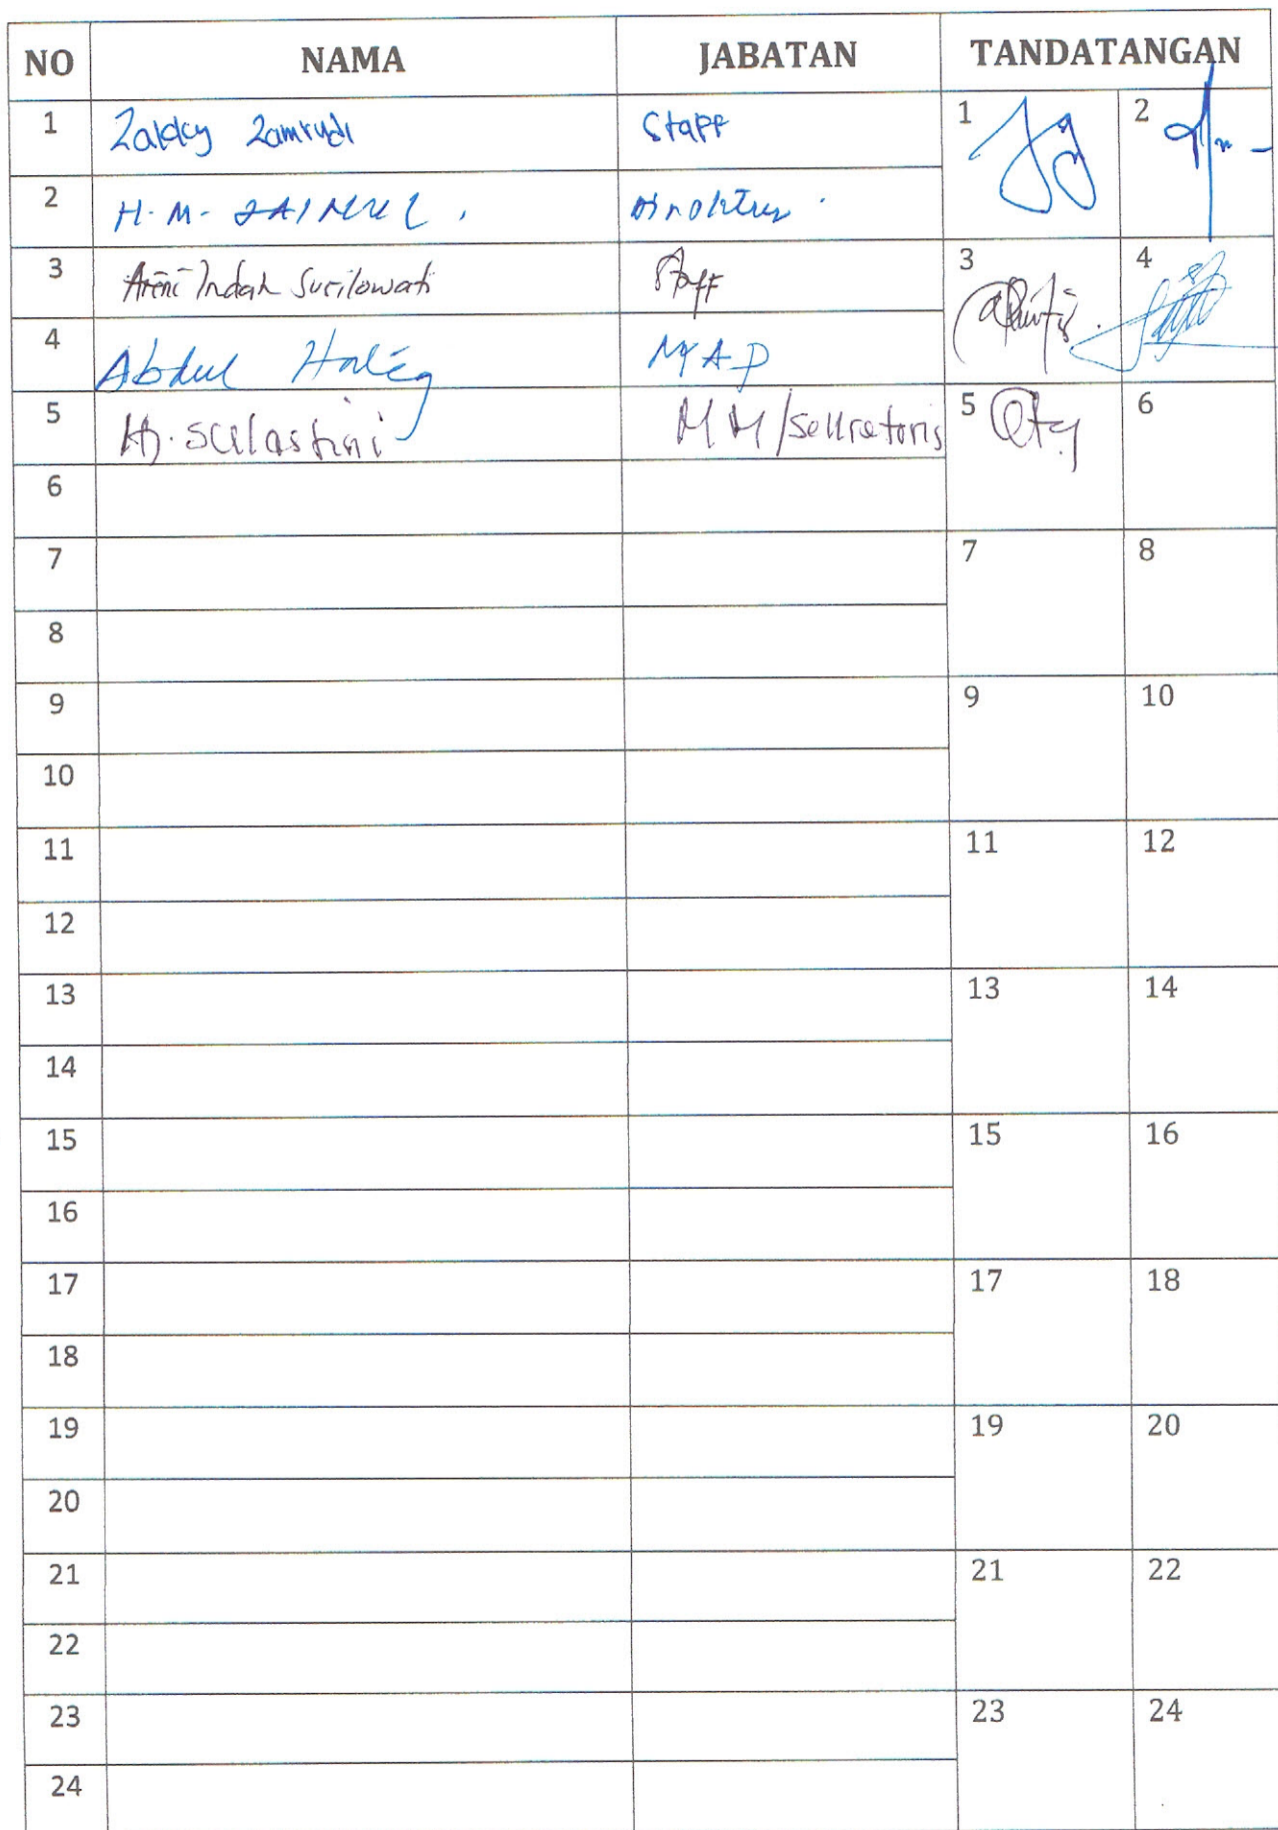 NO NAMA JABATAN TANDATANGAN
1 Zaldy Zamrudi Staff 1 2
2 H. M. ZAINUL Direktur
3 Areni Indah Susilowati Staff 3 4
4 Abdul Haleq MAP
5 Hj. Sulastini MM/Sekretaris 5 6
6
7 7 8
8
9 9 10
10
11 11 12
12
13 13 14
14
15 15 16
16
17 17 18
18
19 19 20
20
21 21 22
22
23 23 24
24